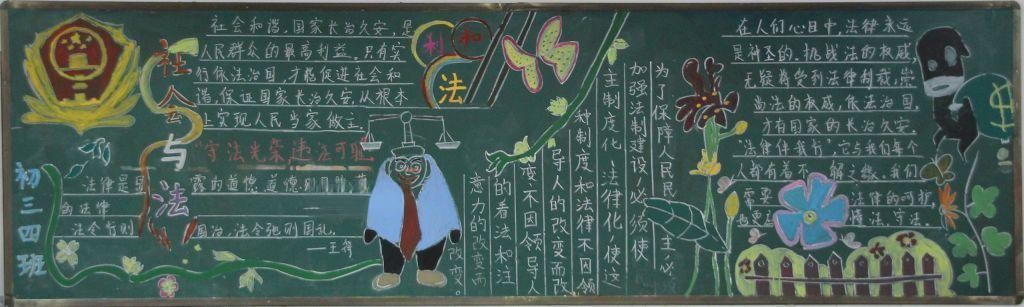 初三四班
社会与法
社会和谐,国家长治久安,是
人民群众的最高利益。只有实
行依法治国,才能促进社会和
谐,保证国家长治久安,从根本
上实现人民当家做主。
"守法光荣,违法可耻
法律是显露的道德,道德是隐
的法律
法令行则国治,法令弛则国乱。
——王符
利
和
法
为了保障人民民主,必
加强法制建设,必须使
主制度化、法律化,使这
种制度和法律不因领
导人的改变而改
变,不因领导人
的看法和注
意力的改变而
改变。
在人们心目中,法律永远
是神圣的,挑战法的权威,
无疑将受到法律制裁。崇
尚法的权威,依法治国,
才有国家的长治久安。
"法律伴我行",它与我们每个
人都有着不解之缘,我们
需要法律的呵护,
也更应懂法,守法。